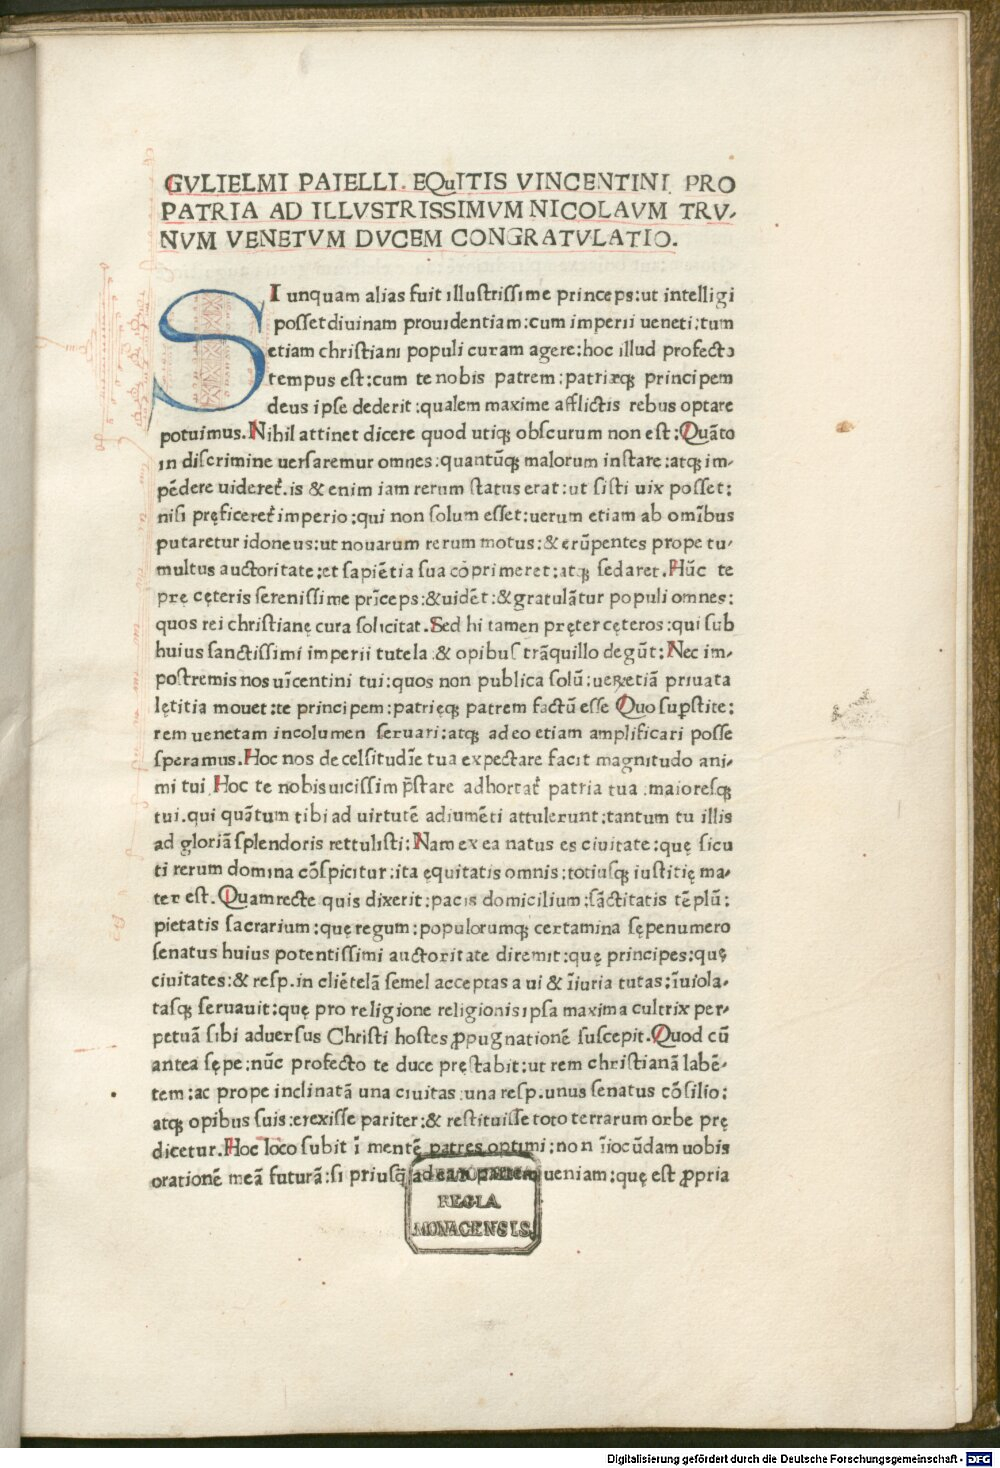 GVLIELMI PAIELLI. EQuITIS VINCENTINI PRO
PATRIA AD ILLVSTRISSIMVM NICOLAVM TRV-
NVM VENETVM DVCEM CONGRATVLATIO.
SI unquam alias fuit illustrissime princeps:ut intelligi
posset diuinam prouidentiam:cum imperii ueneti:tum
etiam christiani populi curam agere:hoc illud profecto
tempus est:cum te nobis patrem:patrięqꝫ principem
deus ipse dederit:qualem maxime afflictis rebus optare
potuimus. Nihil attinet dicere quod utiqꝫ obscurum non est: Quãto
in discrimine uersaremur omnes:quantũqꝫ malorum instare:atqꝫ im-
pẽdere uideretᷣ. is & enim iam rerum status erat:ut sisti uix posset:
nisi pręficeretᷣ imperio:qui non solum esset:uerum etiam ab omĩbus
putaretur idoneus:ut nouarum rerum motus:& erũpentes prope tu-
multus auctoritate:et sapiẽtia sua cõprimeret:atqꝫ sedaret. Hũc te
prę cęteris serenissime prĩceps:&uidẽt:&gratulãtur populi omnes:
quos rei christianę cura solicitat. Sed hi tamen pręter cęteros:qui sub
huius sanctissimi imperii tutela & opibus trãquillo degũt: Nec im-
postremis nos uĩcentini tui:quos non publica solũ:uerũetiã priuata
lętitia mouet:te principem:patrięqꝫ patrem factũ esse Quo suꝑstite:
rem uenetam incolumen seruari:atqꝫ adeo etiam amplificari posse
speramus. Hoc nos de celsitudĩe tua expectare facit magnitudo ani-
mi tui Hoc te nobis uicissim p̃stare adhortatᷣ patria tua maioresqꝫ
tui.qui quãtum tibi ad uirtutẽ adiumẽti attulerunt:tantum tu illis
ad gloriã splendoris rettulisti: Nam ex ea natus es ciuitate:quę sicu
ti rerum domina cõspicitur:ita ęquitatis omnis:totiusqꝫ iustitię ma-
ter est. Quam recte quis dixerit:pacis domicilium:sãctitatis tẽplũ:
pietatis sacrarium:quę regum:populorumqꝫ certamina sępenumero
senatus huius potentissimi auctoritate diremit:quę principes:quę
ciuitates:& resp.in cliẽtelã semel acceptas a ui & ĩiuria tutas:ĩuiola-
tasqꝫ seruauit:quę pro religione religionis ipsa maxima cultrix per-
petuã sibi aduersus Christi hostes ꝓpugnationẽ suscepit. Quod cũ
antea sępe:nũc profecto te duce pręstabit:ut rem christianã labẽ-
tem:ac prope inclinatã una ciuitas:una resp.unus senatus cõsilio:
atqꝫ opibus suis:erexisse pariter:& restituisse toto terrarum orbe prę
dicetur. Hoc loco subit ĩ mentẽ patres optimi:non ĩiocũdam uobis
orationẽ meã futurã:si priusq̃ ad eam partem ueniam:quę est ꝓpria
REGIA
MONACENSIS.
Digitalisierung gefördert durch die Deutsche Forschungsgemeinschaft - DFG